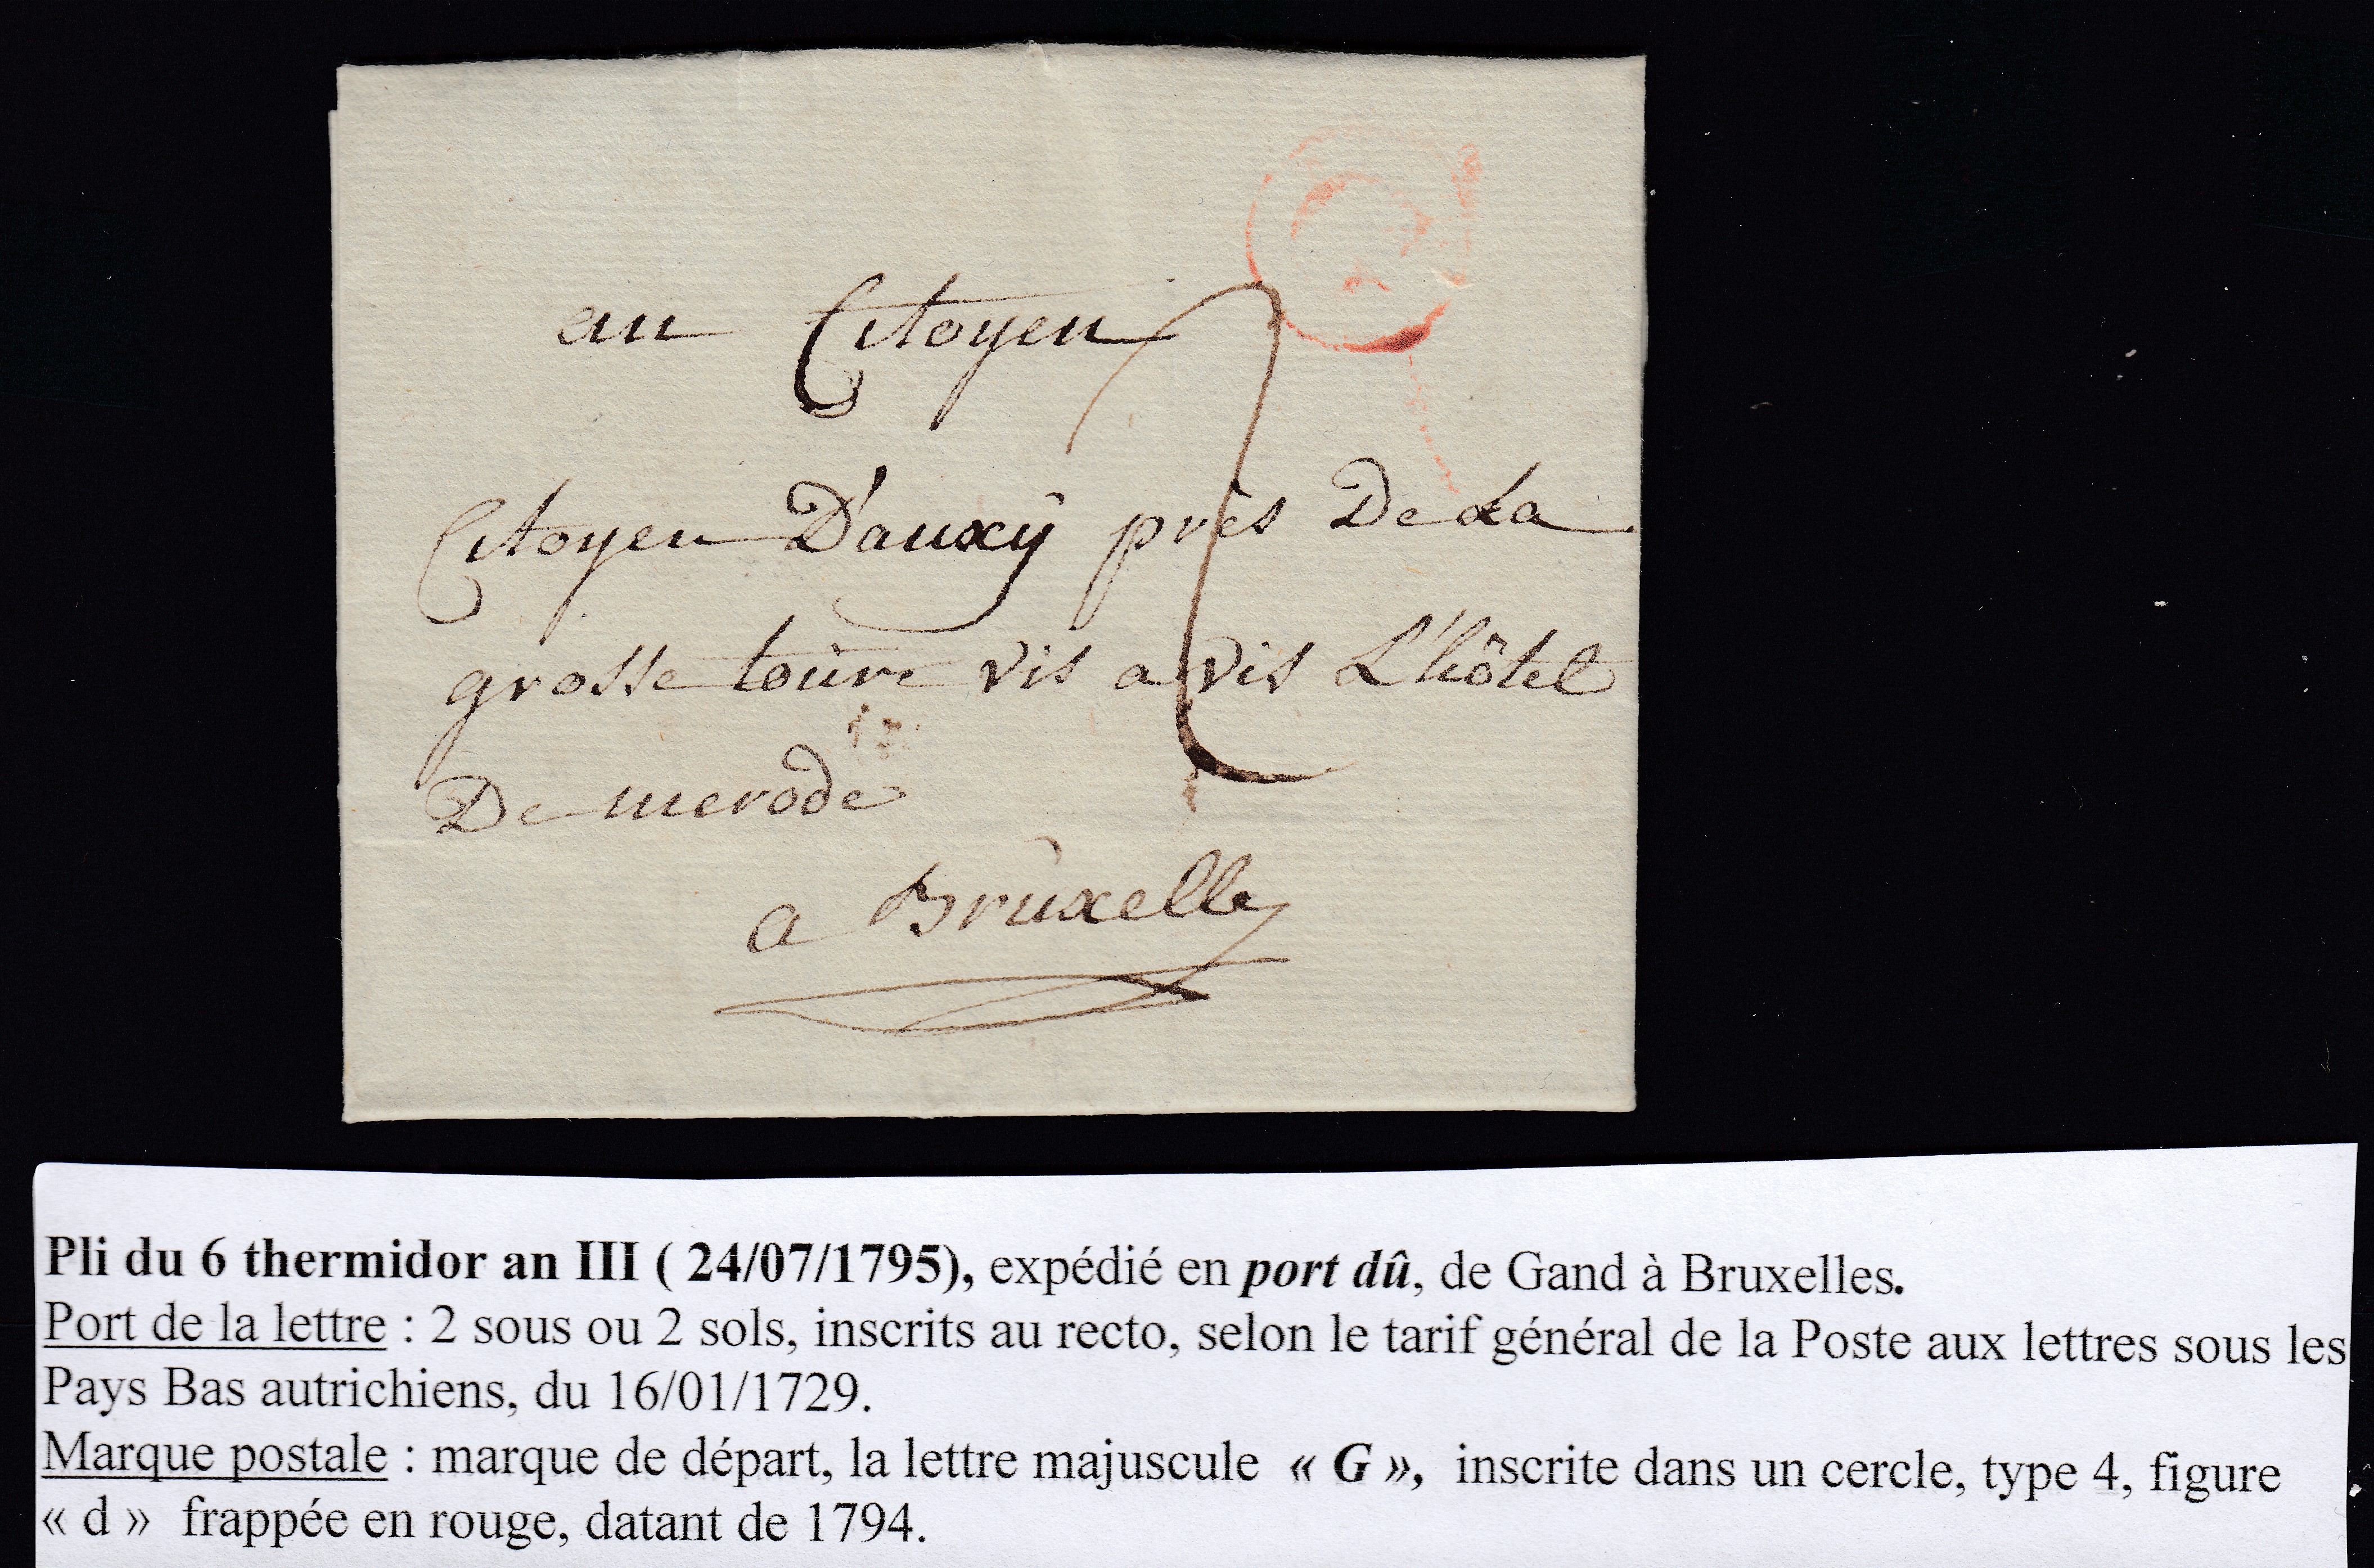 au Citoyen
Citoyen D'auxÿ près De La
grosse toure vis a vis L'hôtel
De merode
a Bruxelles
2
Pli du 6 thermidor an III ( 24/07/1795), expédié en port dû, de Gand à Bruxelles.
Port de la lettre : 2 sous ou 2 sols, inscrits au recto, selon le tarif général de la Poste aux lettres sous les
Pays Bas autrichiens, du 16/01/1729.
Marque postale : marque de départ, la lettre majuscule « G », inscrite dans un cercle, type 4, figure
« d » frappée en rouge, datant de 1794.